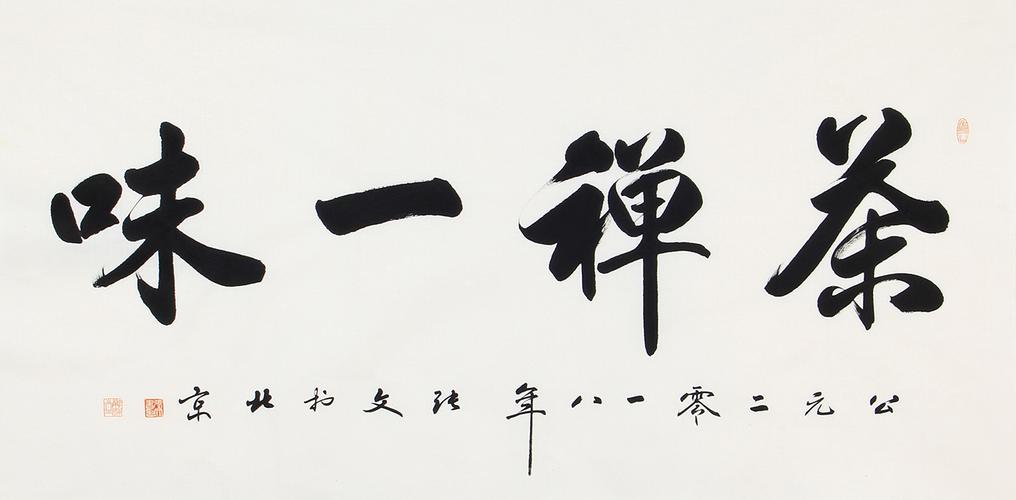 茶禅一味
公元二零一八年张文於北京